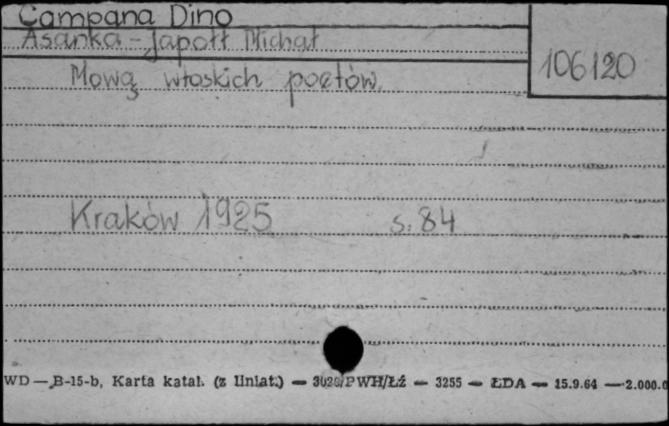 Campana Dino
Asanka-Japołł Michał
106120
Mową włoskich poetów.
Kraków 1925 s. 84
WD — B-15-b, Karta katal. (z liniat.) — 3028/PWH/Łż — 3255 — ŁDA — 15.9.64 — 2.000.0